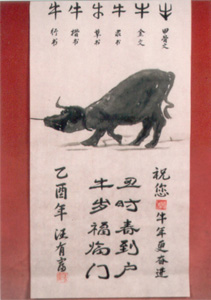 牛 甲骨文
牛 金文
牛 书
牛 草书
牛 楷书
牛 行书
祝您
牛年更奋进
丑时春到户
牛岁福临门
乙酉年 汪有富